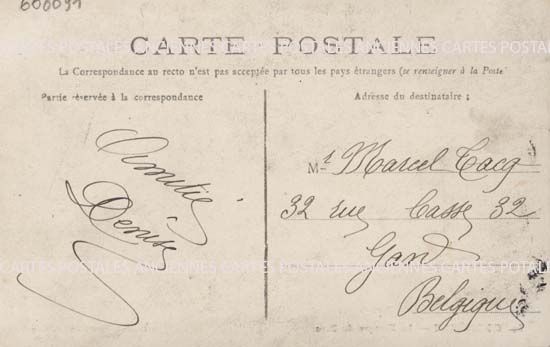 600091
CARTE POSTALE
La Correspondance au recto n'est pas acceptée par tous les pays étrangers (se renseigner à la Poste
Partie réservée à la correspondance
Amitié
Denise
Adresse du destinataire ;
Mr Marcel Cacq
32 rue Casse 32
Gand
Belgique
CARTES POSTALES ANCIENNES CARTES POSTALES
CARTES POSTALES ANCIENNES CARTES POSTALES ANCIENNES CARTES POTALES